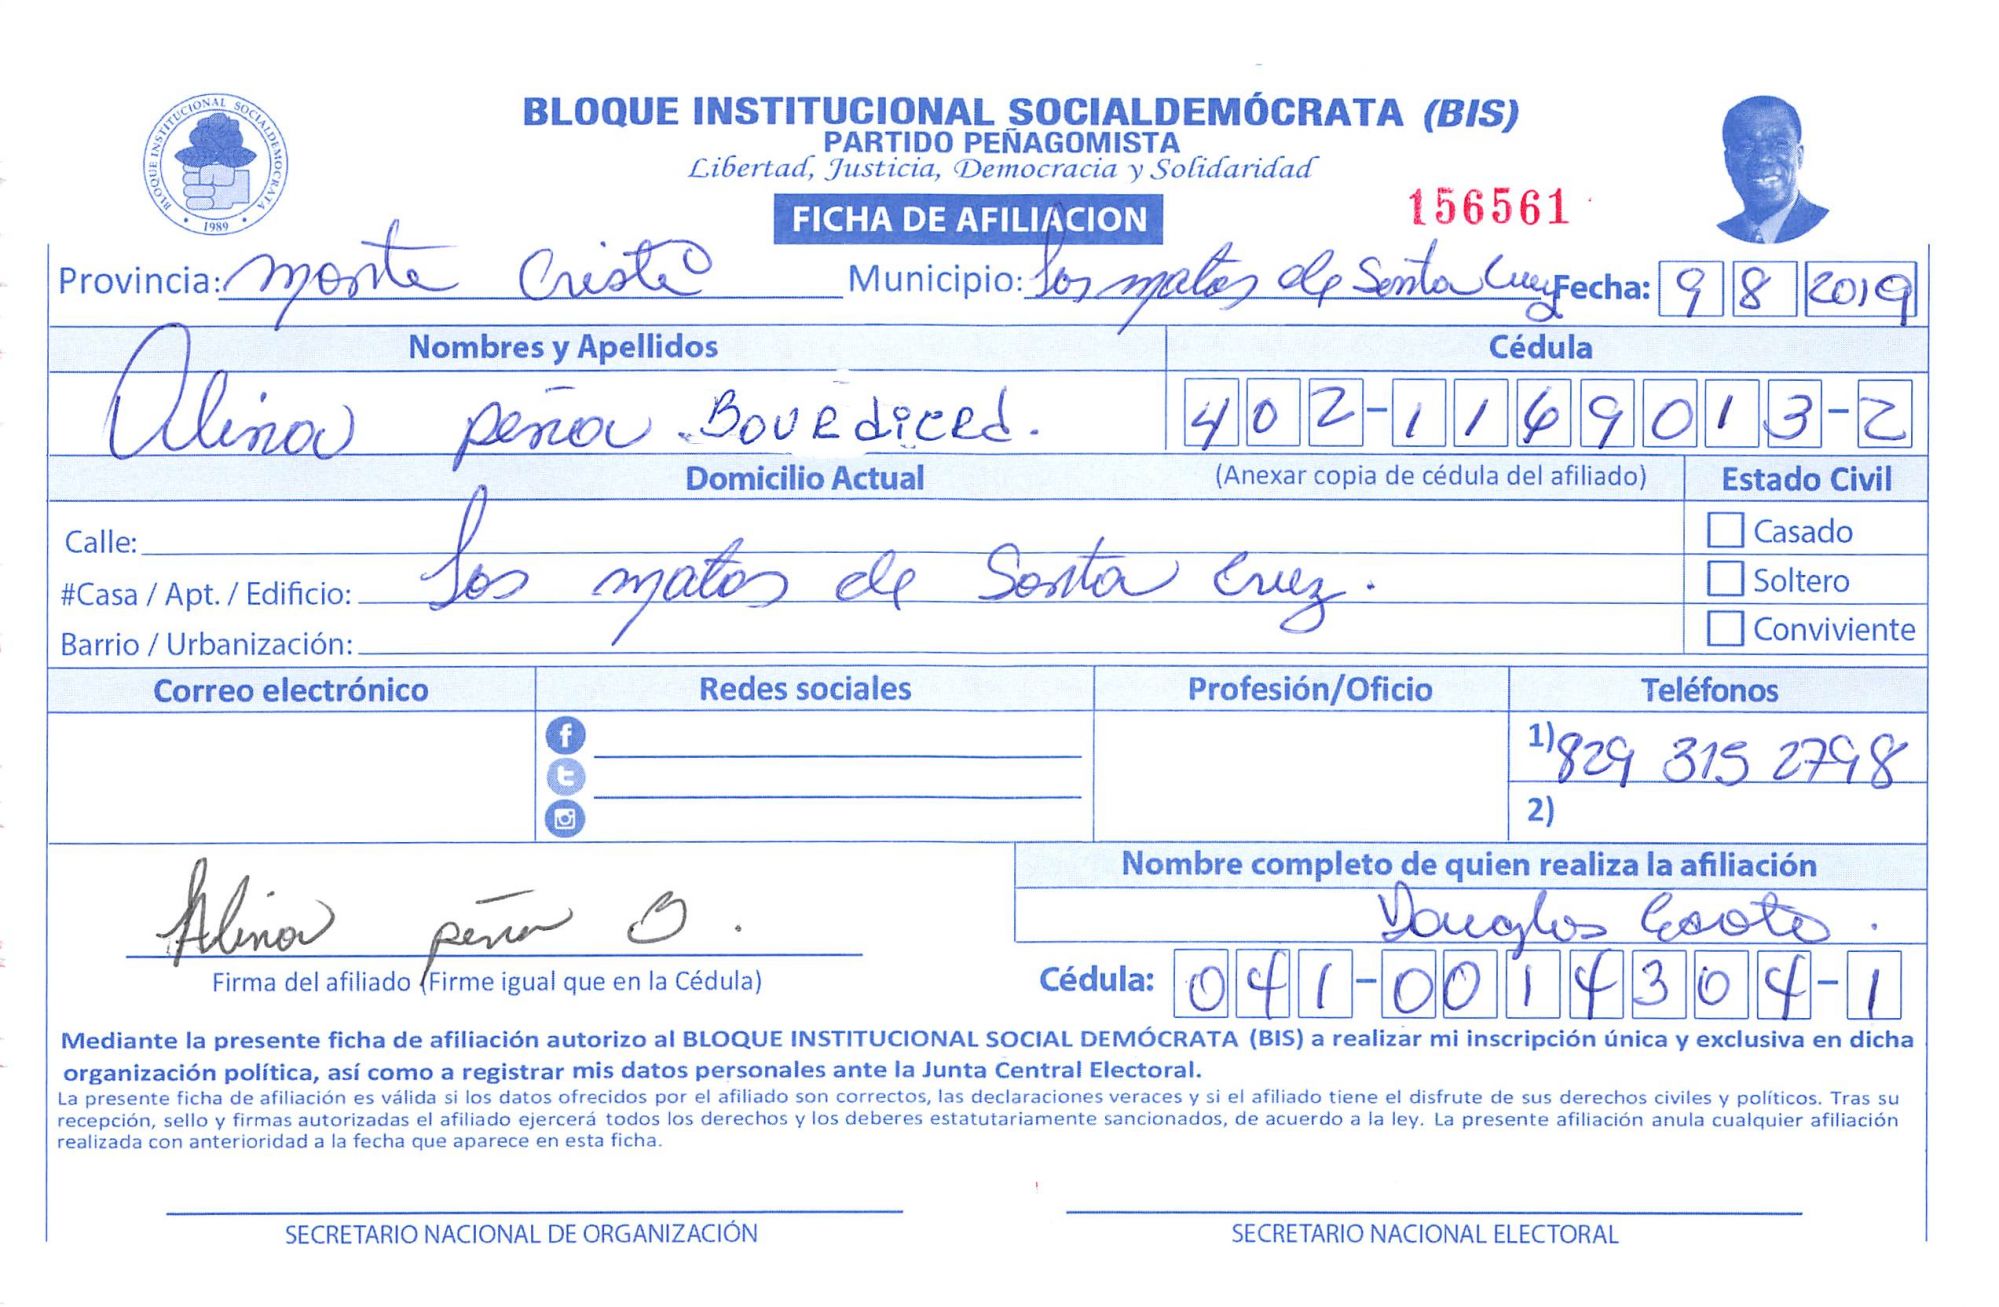 BLOQUE INSTITUCIONAL SOCIALDEMOCRATA
1989
BLOQUE INSTITUCIONAL SOCIALDEMÓCRATA (BIS)
PARTIDO PEÑAGOMISTA
Libertad, Justicia, Democracia y Solidaridad
FICHA DE AFILIACION
156561
Provincia: Monte Cristi Municipio: Las matas de Santa Cruz Fecha: 9 8 2019
Nombres y Apellidos Cédula
Alina peña 402-1169013-2
Domicilio Actual (Anexar copia de cédula del afiliado) Estado Civil
Calle: Casado
#Casa / Apt. / Edificio: Las matas de Santa Cruz. Soltero
Barrio / Urbanización: Conviviente
Correo electrónico Redes sociales Profesión/Oficio Teléfonos
1) 829 315 2798
2)
Nombre completo de quien realiza la afiliación
Douglas
Alina peña B.
Firma del afiliado (Firme igual que en la Cédula) Cédula: 041-0014304-1
Mediante la presente ficha de afiliación autorizo al BLOQUE INSTITUCIONAL SOCIAL DEMÓCRATA (BIS) a realizar mi inscripción única y exclusiva en dicha
organización política, así como a registrar mis datos personales ante la Junta Central Electoral.
La presente ficha de afiliación es válida si los datos ofrecidos por el afiliado son correctos, las declaraciones veraces y si el afiliado tiene el disfrute de sus derechos civiles y políticos. Tras su
recepción, sello y firmas autorizadas el afiliado ejercerá todos los derechos y los deberes estatutariamente sancionados, de acuerdo a la ley. La presente afiliación anula cualquier afiliación
realizada con anterioridad a la fecha que aparece en esta ficha.
SECRETARIO NACIONAL DE ORGANIZACIÓN SECRETARIO NACIONAL ELECTORAL